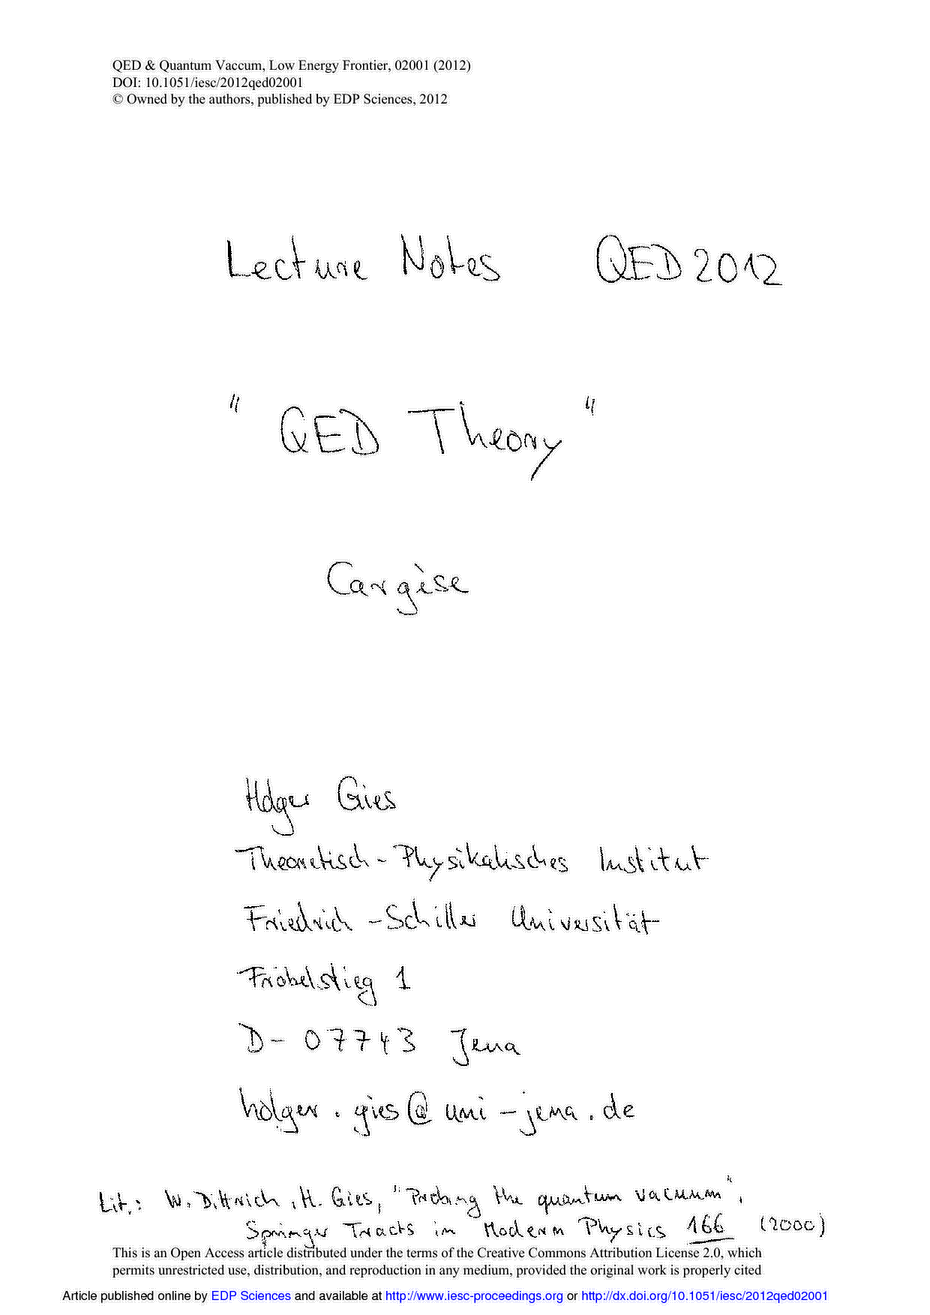 QED & Quantum Vaccum, Low Energy Frontier, 02001 (2012)
DOI: 10.1051/iesc/2012qed02001
© Owned by the authors, published by EDP Sciences, 2012
Lecture Notes QED 2012
"QED Theory"
Cargèse
Holger Gies
Theoretisch-Physikalisches Institut
Friedrich-Schiller Universität
Fröbelstieg 1
D-07743 Jena
holger.gies@uni-jena.de
Lit.: W. Dittrich, H. Gies, "Probing the quantum vacuum",
Springer Tracts in Modern Physics 166 (2000)
This is an Open Access article distributed under the terms of the Creative Commons Attribution License 2.0, which
permits unrestricted use, distribution, and reproduction in any medium, provided the original work is properly cited
Article published online by EDP Sciences and available at http://www.iesc-proceedings.org or http://dx.doi.org/10.1051/iesc/2012qed02001